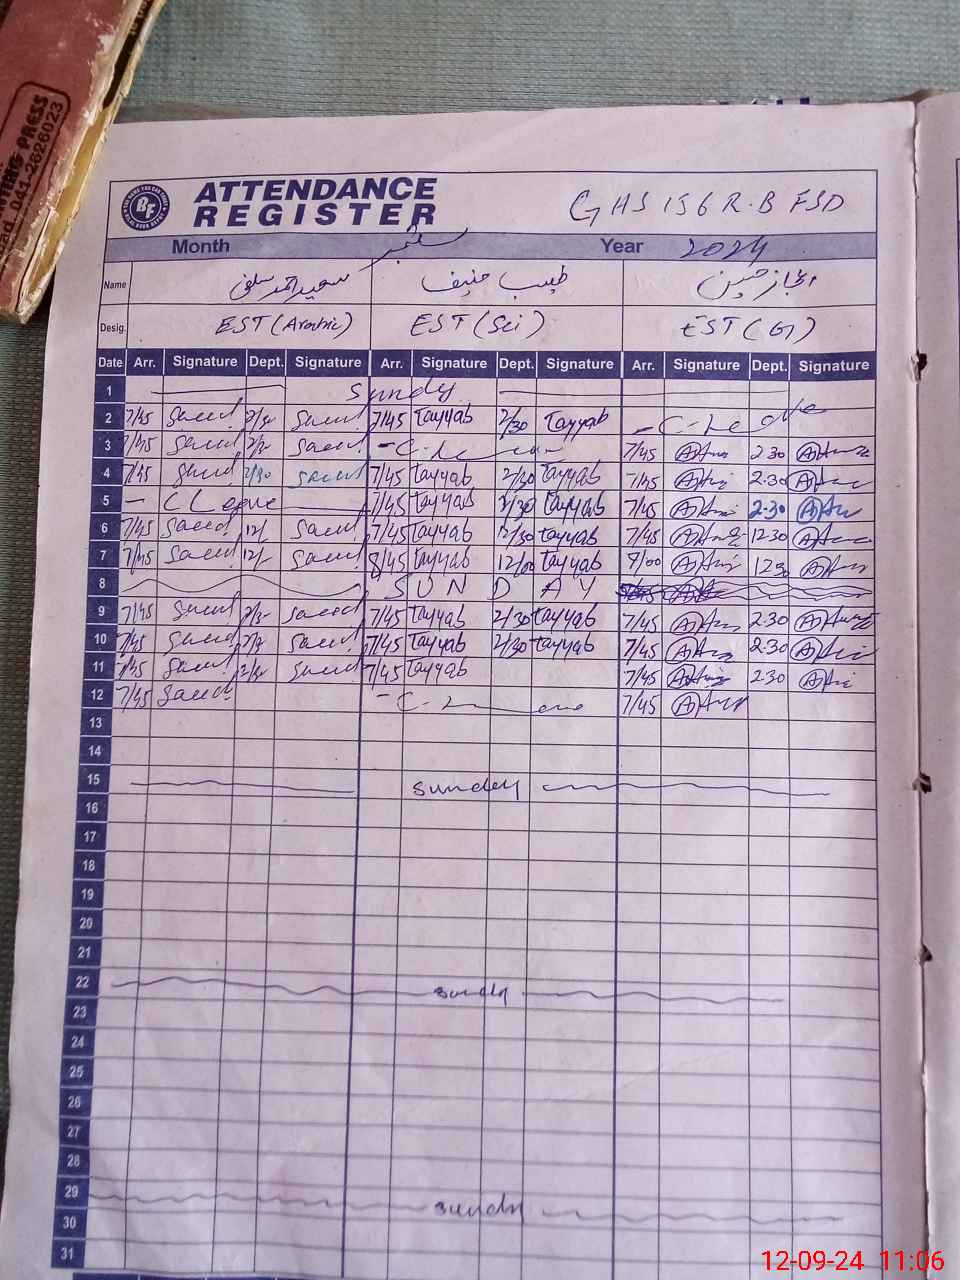 NTING PRESS
ad. 041-2626023
BF
ATTENDANCE
REGISTER
GHS 156 R.B FSD
Month ستمبر Year 2024
Name سعید احمد سلفی طیب حنیف اعجاز حسین
Desig. EST (Arabic) EST (Sci) EST (G)
Date Arr. Signature Dept. Signature Arr. Signature Dept. Signature Arr. Signature Dept. Signature
1 Sundy
2 7/45 Saeed 2/30 Saeed 7/45 Tayyab 2/30 Tayyab - C-Leave
3 7/45 Saeed 2/2 Saeed - C-Leave 7/45 2 30
4 7/45 Saeed 2/30 Saeed 7/45 Tayyab 2/30 Tayyab 7/45 2-30
5 - C Leave 7/45 Tayyab 2/30 Tayyab 7/45 2-30
6 7/45 Saeed 12/ Saeed 7/45 Tayyab 12/30 Tayyab 7/45 12 30
7 7/45 Saeed 12/ Saeed 8/45 Tayyab 12/00 Tayyab 8/00 12 30
8 S U N D A Y
9 7/45 Saeed 2/2 Saeed 7/45 Tayyab 2/30 Tayyab 7/45 2-30
10 7/45 Saeed 2/2 Saeed 7/45 Tayyab 2/30 Tayyab 7/45 2-30
11 7/45 Saeed 2/30 Saeed 7/45 Tayyab 7/45 2-30
12 7/45 Saeed - C-Leave 7/45
13
14
15 sunday
16
17
18
19
20
21
22 sundy
23
24
25
26
27
28
29 sundy
30
31
12-09-24 11:06